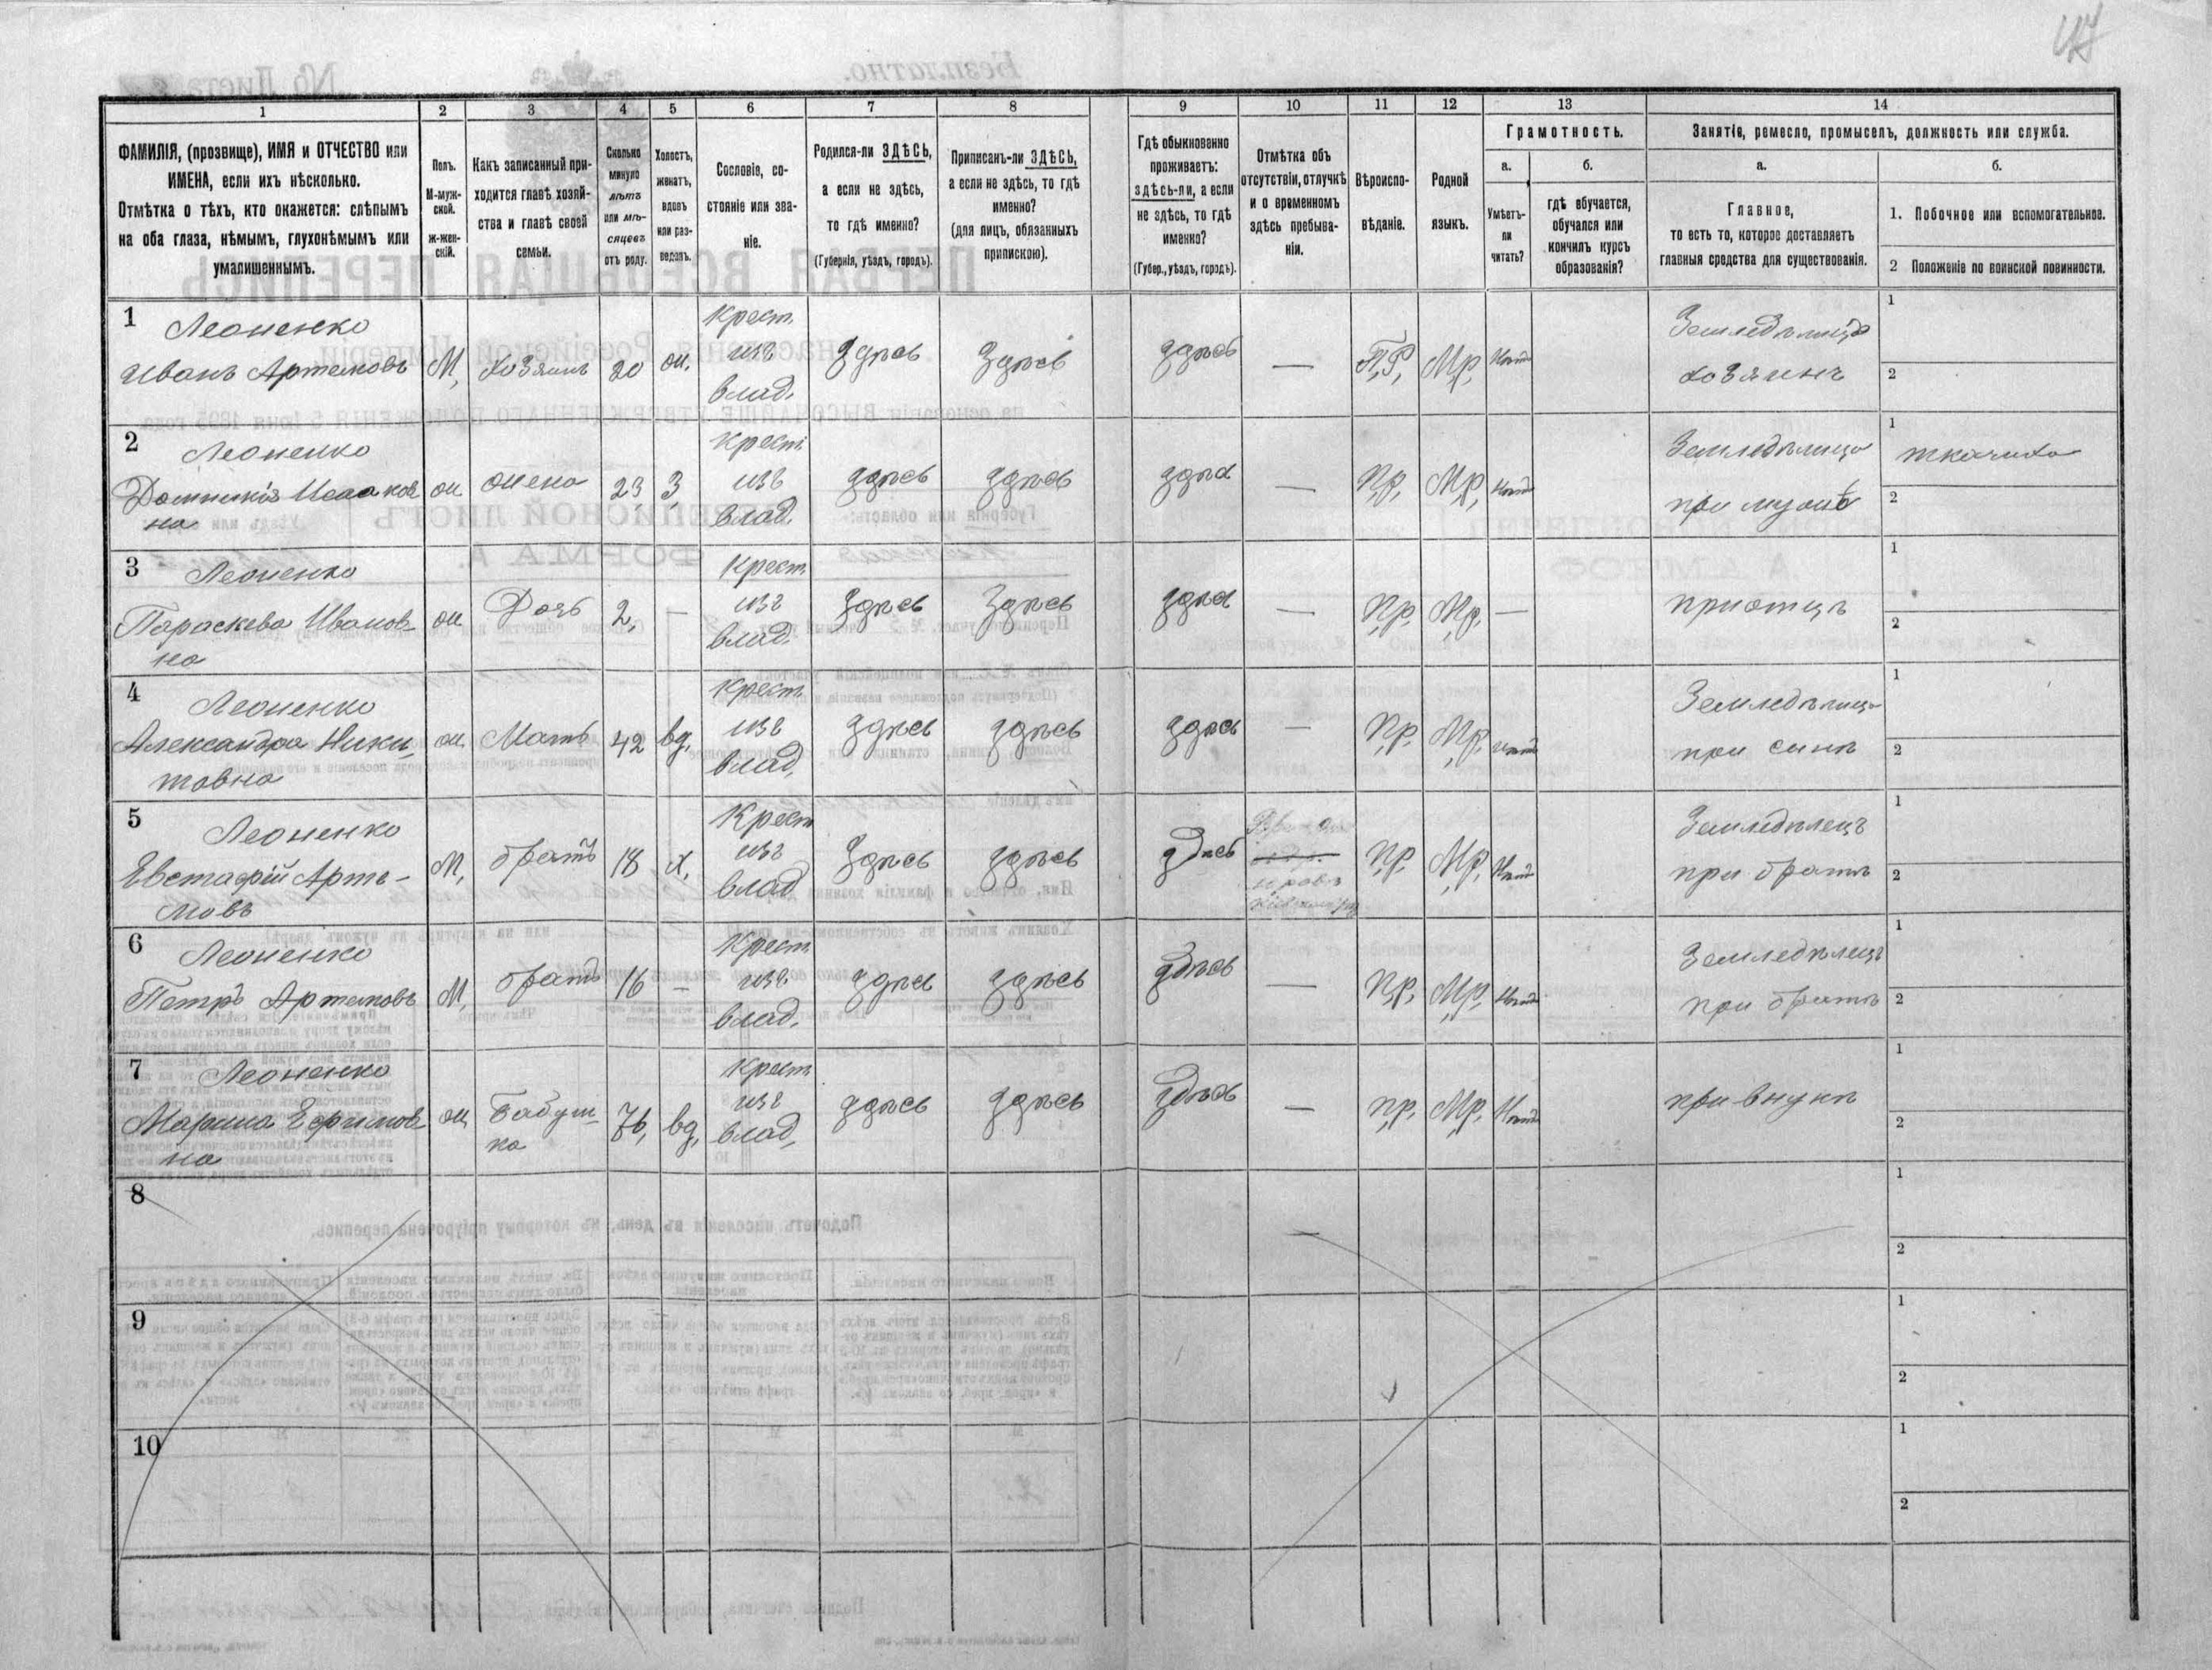 1
2
3
4
5
6
7
8
9
10
11
12
13
14
ФАМИЛІЯ, (прозвище), ИМЯ и ОТЧЕСТВО или
ИМЕНА, если ихъ нѣсколько.
Отмѣтка о тѣхъ, кто окажется: слѣпымъ
на оба глаза, нѣмымъ, глухонѣмымъ или
умалишеннымъ.
Полъ.
М-муж-
ской.
Ж-жен-
скій.
Какъ записанный при-
ходится главѣ хозяй-
ства и главѣ своей
семьи.
Сколько
минуло
лѣтъ
или мѣ-
сяцевъ
отъ роду.
Холостъ,
женатъ,
вдовъ
или раз-
веденъ.
Сословіе, со-
стояніе или зва-
ніе.
Родился-ли ЗДѢСЬ,
а если не здѣсь,
то гдѣ именно?
(Губернія, уѣздъ, городъ).
Приписанъ-ли ЗДѢСЬ,
а если не здѣсь, то гдѣ
именно?
(для лицъ, обязанныхъ
припискою).
Гдѣ обыкновенно
проживаетъ:
здѣсь-ли, а если
не здѣсь, то гдѣ
именно?
(Губер., уѣздъ, городъ).
Отмѣтка объ
отсутствіи, отлучкѣ
и о временномъ
здѣсь пребыва-
ніи.
Вѣроиспо-
вѣданіе.
Родной
языкъ.
Грамотность.
а.
Умѣетъ-
ли
читать?
б.
гдѣ обучается,
обучался или
кончилъ курсъ
образованія?
Занятіе, ремесло, промыселъ, должность или служба.
а.
Главное,
то есть то, которое доставляетъ
главныя средства для существованія.
б.
1. Побочное или вспомогательное.
2 Положеніе по воинской повинности.
1 Леоненко
Иванъ Артемовъ М, хозяинъ 20 ж. Крест. изъ влад. Здѣсь Здѣсь здѣсь — П.Р. М,р, Нѣтъ Земледѣлецъ хозяинъ 1 2
2 Леоненко
на ж жена 23 З Крест. изъ влад. здѣсь здѣсь здѣсь — П,р, М,р, Нѣтъ при мужѣ 1 ткачиха 2
3 Леоненко
Параскева Иванов-
на ж Дочь 2, — Крест. изъ влад. Здѣсь Здѣсь здѣсь — П,р, М,р, — при отцѣ 1 2
4 Леоненко
Александра Ники-
товна ж Мать 42 вд. Крест. изъ влад. здѣсь здѣсь здѣсь — П,р. М,р, нѣтъ при синѣ 1 2
5 Леоненко
Евстафій Арте-
мовъ М, братъ 18 х, Крест. изъ влад Здѣсь здѣсь здѣсь П,р. М,р, Нѣтъ Земледѣлецъ при братѣ 1 2
6 Леоненко
Петръ Артемовъ М, братъ 16 — Крест. изъ влад. здѣсь здѣсь здѣсь — П,р, М,р, Нѣтъ Земледѣлецъ при братѣ 1 2
7 Леоненко
Марина Ефимов
на ж Бабуш-
ка 76, вд, Крест. изъ влад, здѣсь здѣсь здѣсь — п,р, М,р, Нѣтъ при внукѣ 1 2
8 1 2
9 1 2
10 1 2